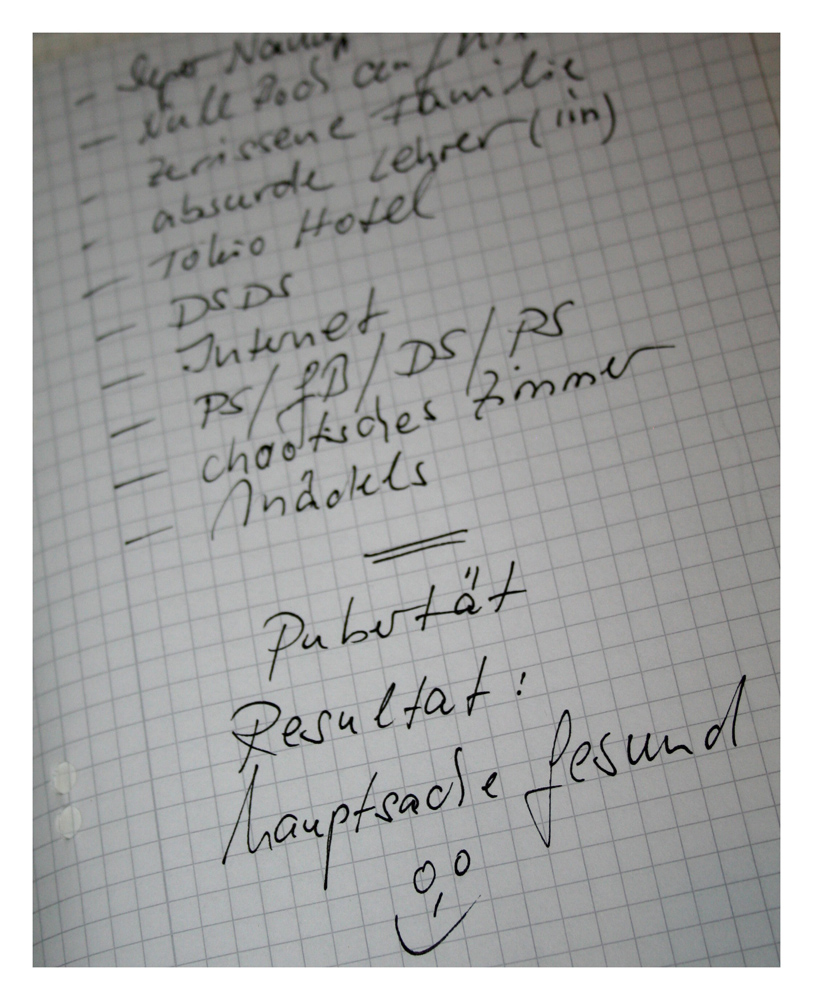 - Super Nanny
- Null Bock auf
- zerrissene Familie
- absurde Lehrer (iin)
- Tokio Hotel
- DSDS
- Internet
- PS / GB / DS / PS
- chaotisches Zimmer
- Mädels
Pubertät
Resultat:
hauptsache gesund